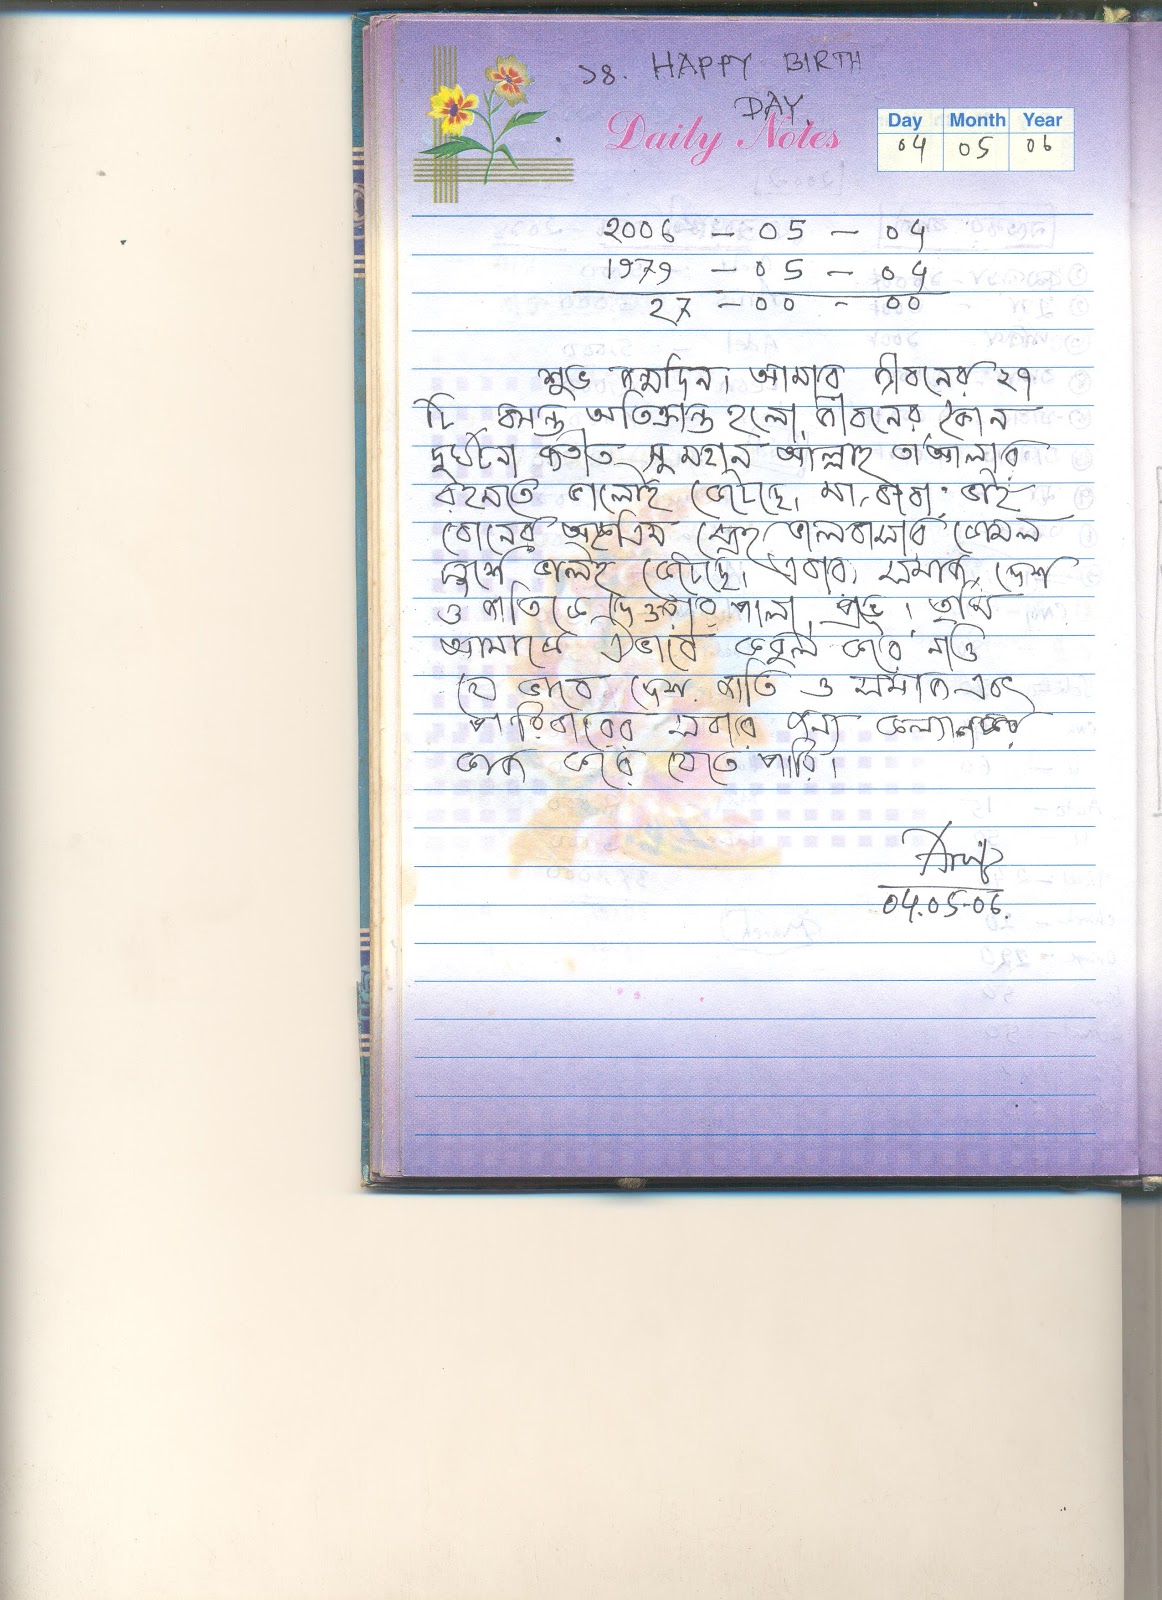 ১৪. HAPPY BIRTH
DAY.
Daily Notes
Day Month Year
04 05 06
2006 - 05 - 04
1979 - 05 - 04
27 - 00 - 00
শুভ জন্মদিন। আমার জীবনের ২৭
টি বসন্ত অতিক্রান্ত হলো, জীবনের কোন
দুর্ঘটনা ব্যতীত সুমহান আল্লাহ তা'আলার
রহমতে ভালোই কেটেছে। মা, বাবা, ভাই
বোনের অকৃত্রিম স্নেহ ভালবাসার কোমল
স্পর্শে ভালই কেটেছে। এবার সমাজ, দেশ
ও জাতিকে দেওয়ার পালা, প্রভু। তুমি
আমাকে এভাবে কবুল করে নাও
যে ভাবে দেশ জাতি ও সমাজ এবং
পরিবারের সবার জন্য কল্যানকর
কাজ করে যেতে পারি।
04.05-06.